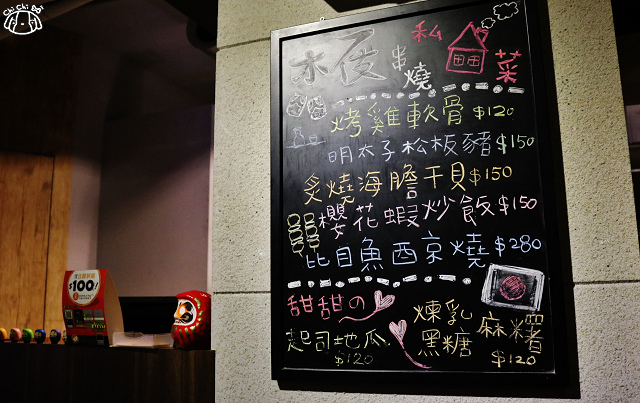 Chi Chi Bo!
木夜串燒
私菜
烤雞軟骨 $120
明太子松板豬 $150
炙燒海膽干貝 $150
櫻花蝦炒飯 $150
比目魚西京燒 $280
甜甜の
起司地瓜 $120
煉乳黑糖麻糬 $120
$100!